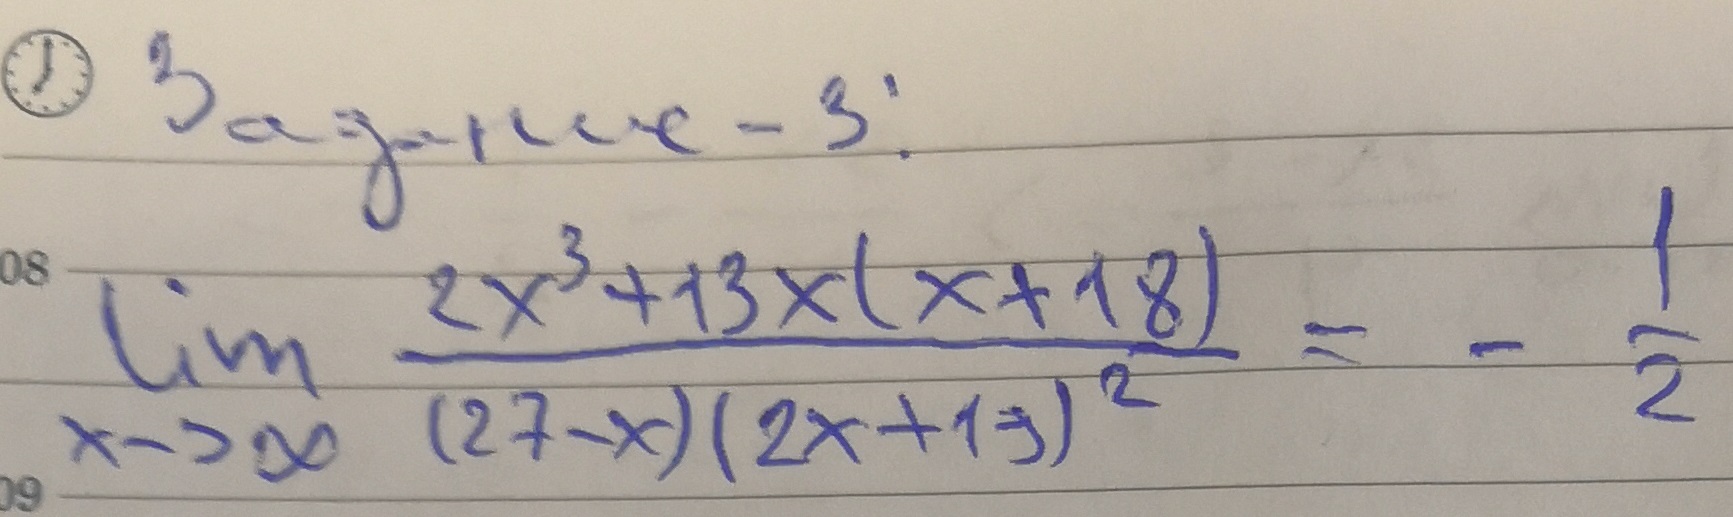 Задание - 3:
08
lim x->∞ (2x³+13x(x+18))/((27-x)(2x+19)²) = - 1/2
09